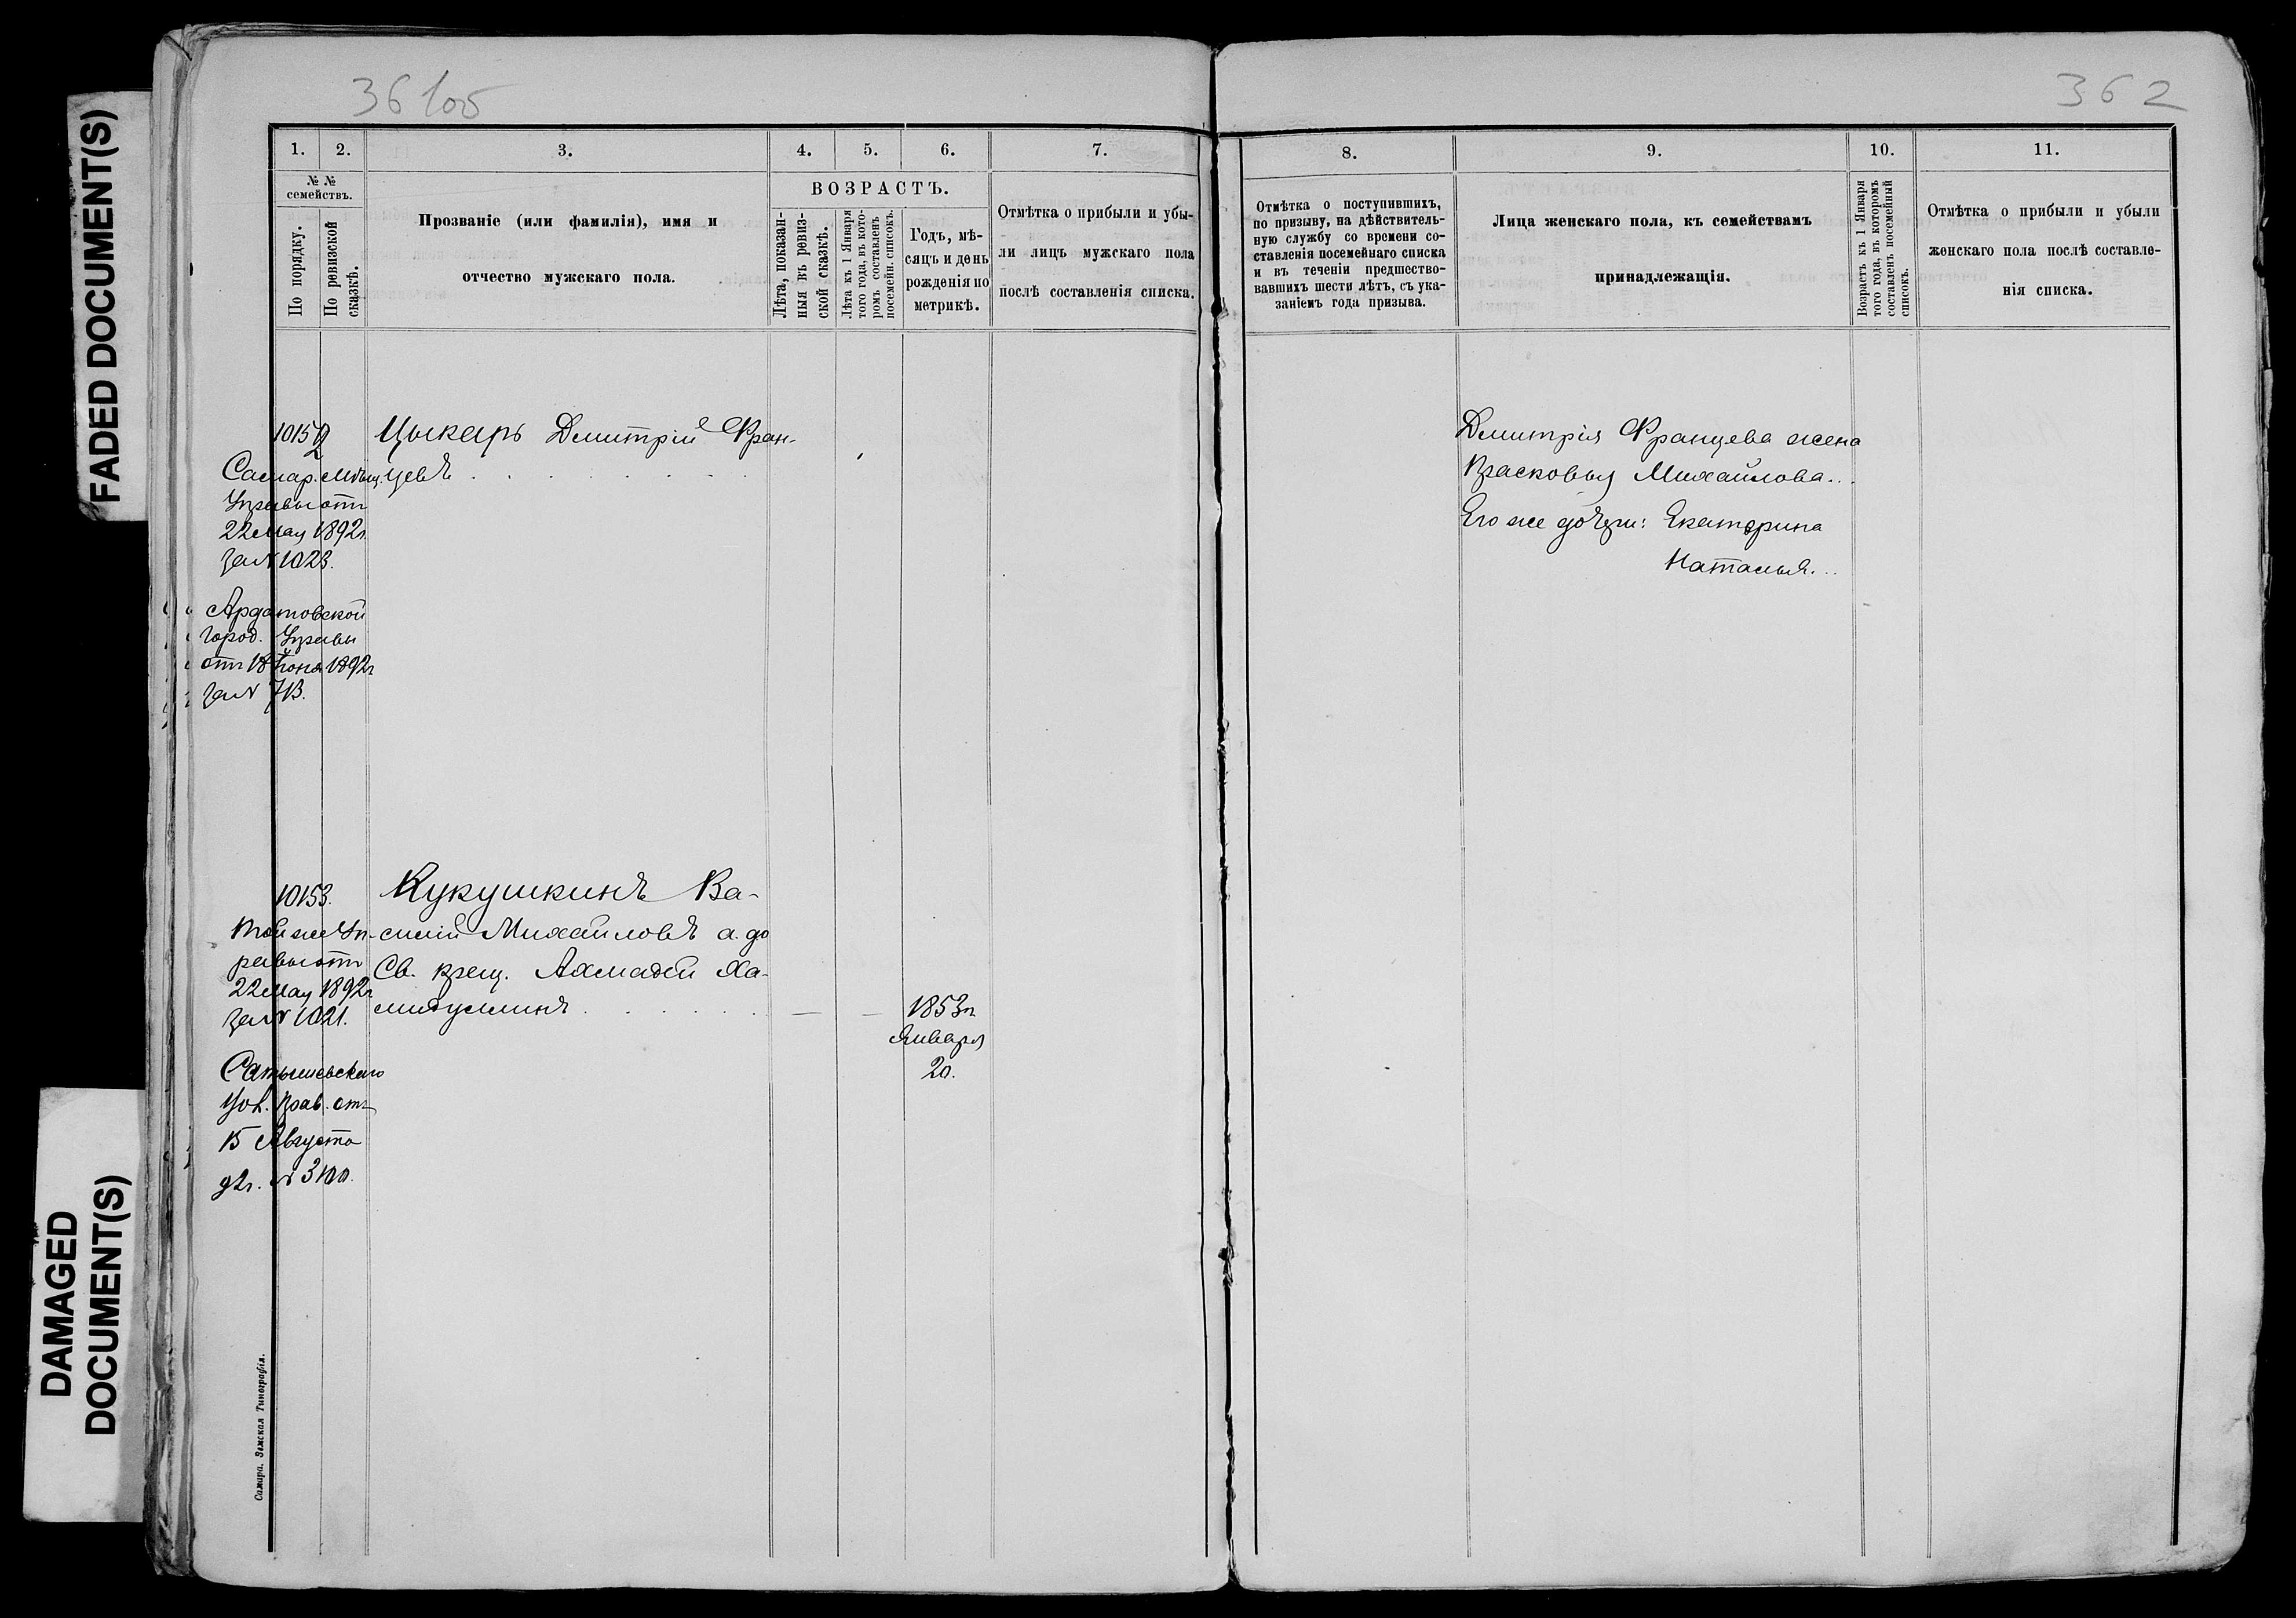 FADED DOCUMENT(S)
DAMAGED
DOCUMENT(S)
36 1об
1. 2. 3. 4. 5. 6. 7.
№ №
семействъ.
По порядку.
По ревизской
сказкѣ.
Прозваніе (или фамилія), имя и
отчество мужскаго пола.
ВОЗРАСТЪ.
Лѣта, показан-
ныя въ ревиз-
ской сказкѣ.
Лѣта къ 1 Января
того года, въ кото-
ромъ составленъ
посемейн. списокъ.
Годъ, мѣ-
сяцъ и день
рожденія по
метрикѣ.
Отмѣтка о прибыли и убы-
ли лицъ мужскаго пола
послѣ составленія списка.
10152
Цыкаръ Дмитрій Фран-
цевъ
Самар. Мѣщ.
Управы отъ
22 Мая 1892г.
за N 1023.
Ардатовской
Город. Управы
отъ 18 Іюня 1892г
за N 713.
10153.
Кукушкинъ Ва-
силій Михайловъ а до
Св. крещ. Ахмадей Ха-
мидуллинъ
1853г
Января
20.
Той же Уп-
равы отъ
22 Мая 1892г
за N 1021.
Сатышевскаго
Вол. Прав. отъ
15 Августа
92г. N
Самара. Земская Типографія.
362
8. 9. 10. 11.
Отмѣтка о поступившихъ,
по призыву, на дѣйствитель-
ную службу со времени со-
ставленія посемейнаго списка
и въ теченіи предшество-
вавшихъ шести лѣтъ, съ ука-
заніемъ года призыва.
Лица женскаго пола, къ семействамъ
принадлежащія.
Возрастъ къ 1 Января
того года, въ которомъ
составленъ посемейный
списокъ.
Отмѣтка о прибыли и убыли
женскаго пола послѣ составле-
нія списка.
Дмитрія Францева жена
Прасковья Михайлова...
Его же дочери: Екатерина
Наталья...